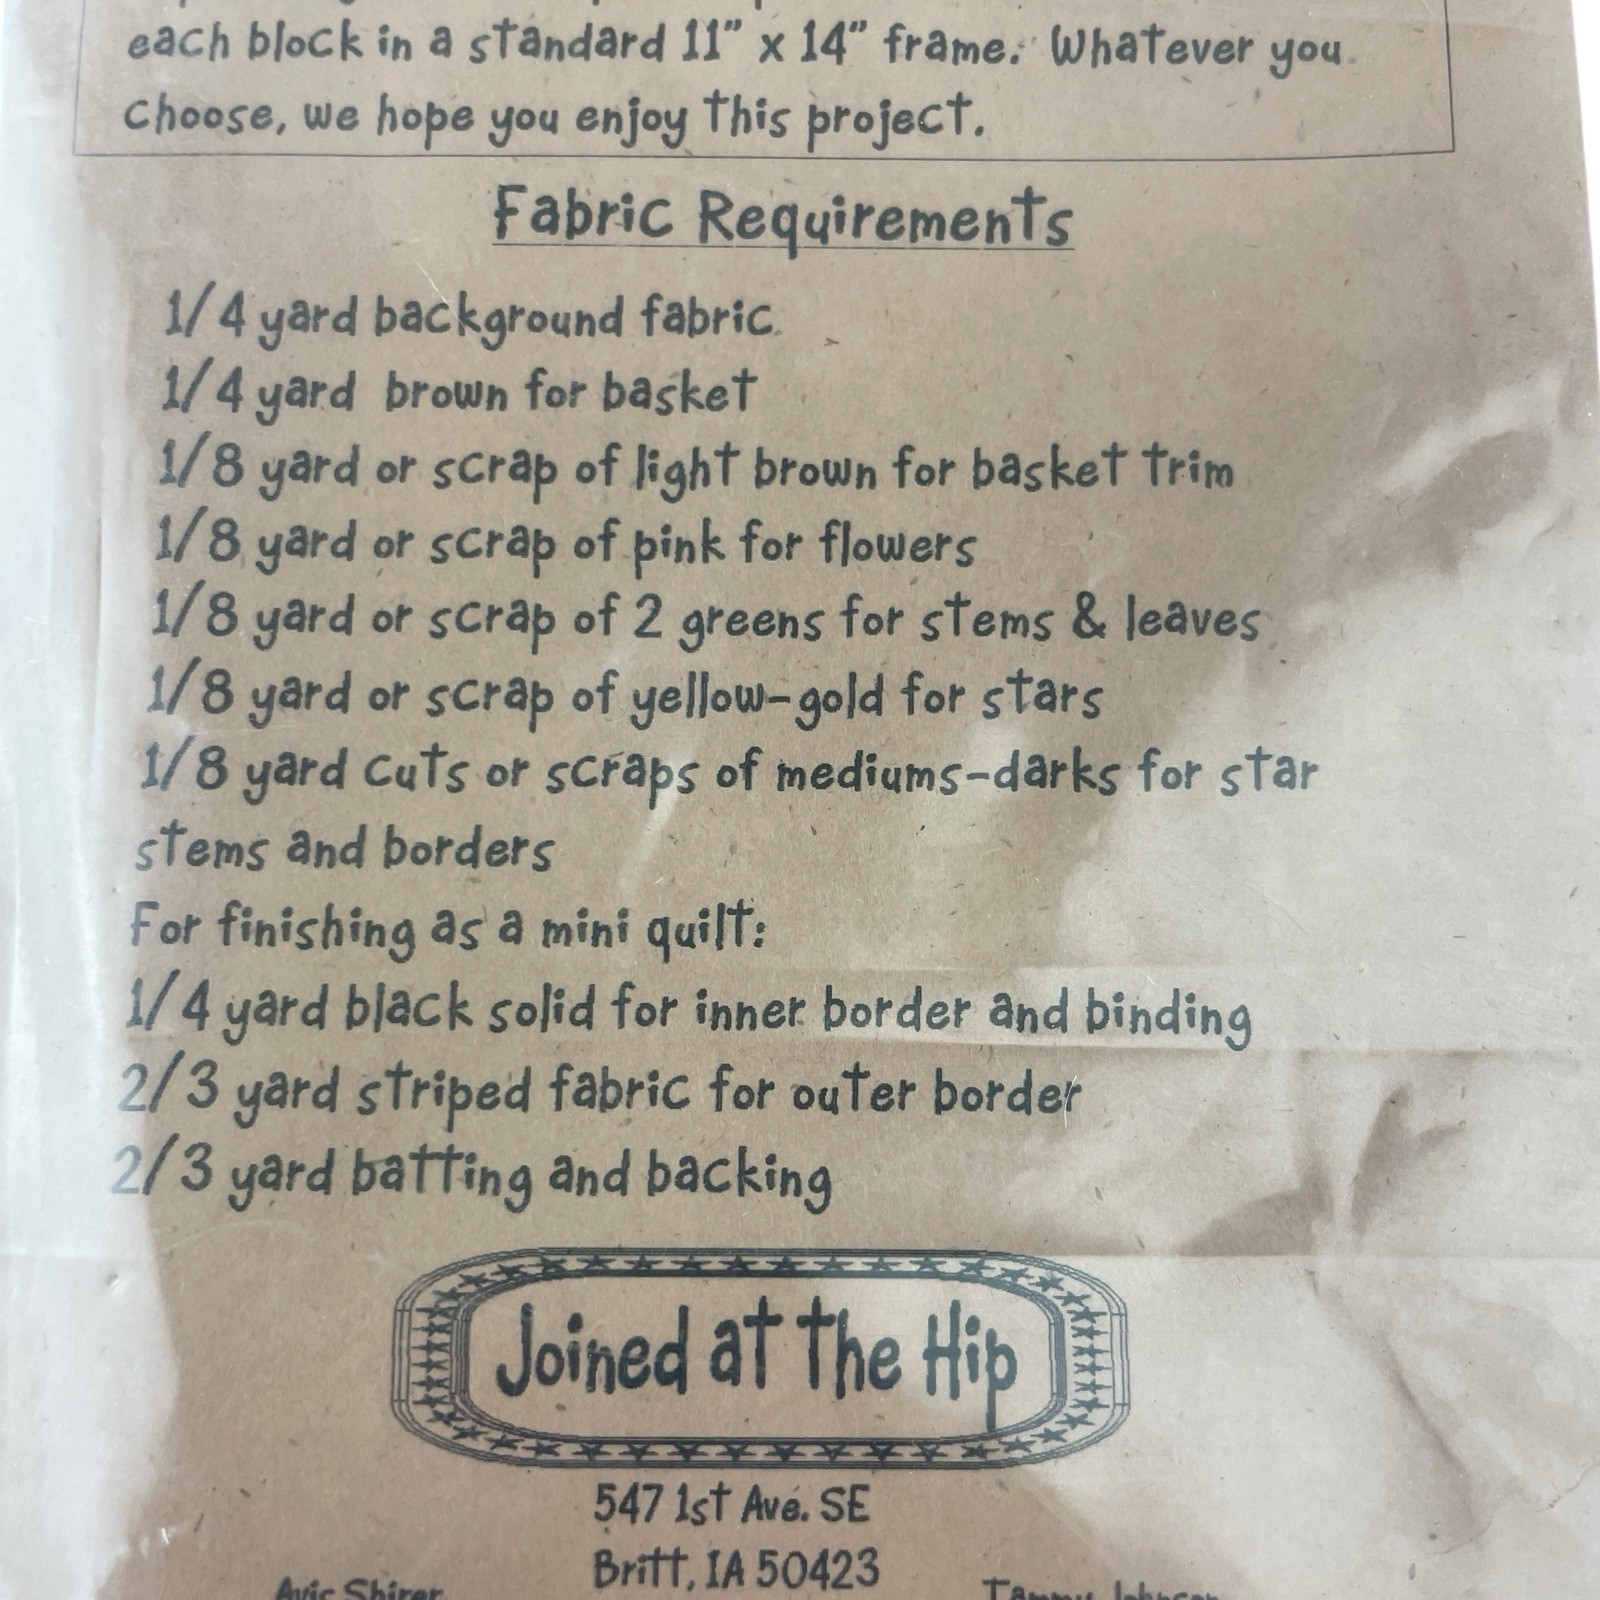 each block in a standard 11" x 14" frame. Whatever you
choose, we hope you enjoy this project.
Fabric Requirements
1/4 yard background fabric
1/4 yard brown for basket
1/8 yard or scrap of light brown for basket trim
1/8 yard or scrap of pink for flowers
1/8 yard or scrap of 2 greens for stems & leaves
1/8 yard or scrap of yellow-gold for stars
1/8 yard cuts or scraps of mediums-darks for star
stems and borders
For finishing as a mini quilt:
1/4 yard black solid for inner border and binding
2/3 yard striped fabric for outer border
2/3 yard batting and backing
Joined at the Hip
547 1st Ave. SE
Britt, IA 50423
Avis Shirer Tammy Johnson